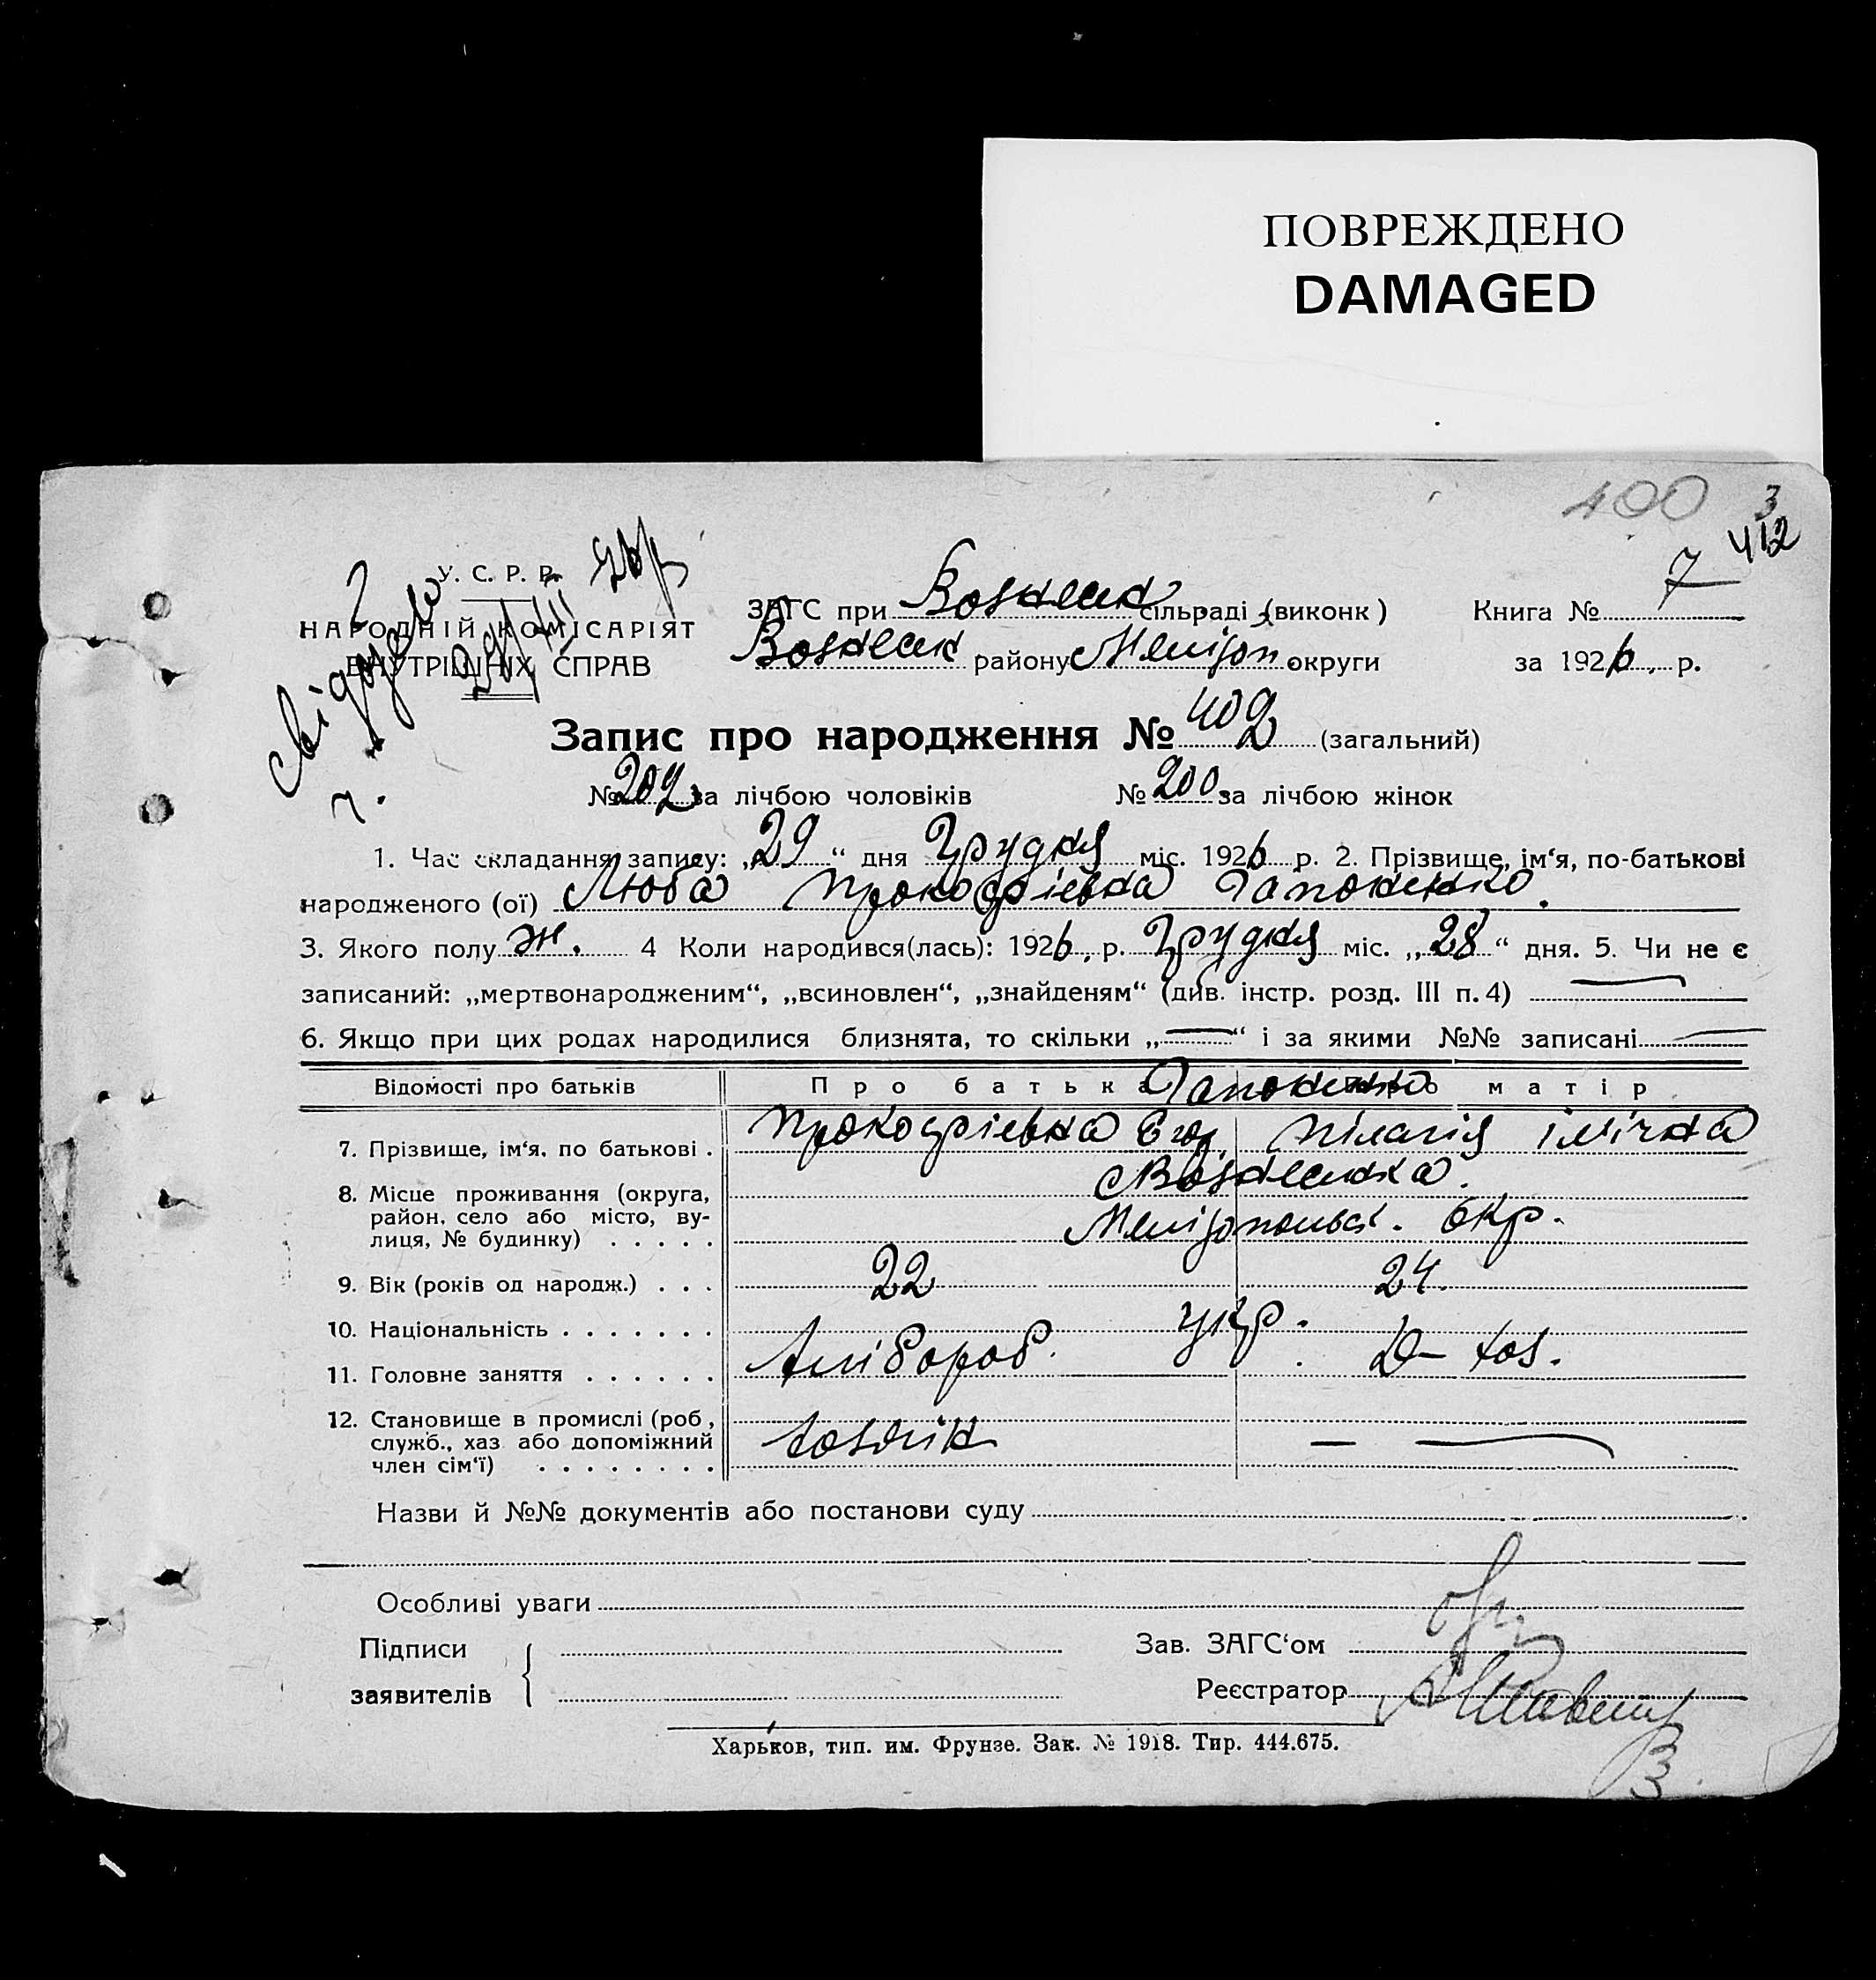 ПОВРЕЖДЕНО
DAMAGED
400 3
412
У. С. Р. Р.
НАРОДНІЙ КОМІСАРІЯТ
ВНУТРІШНІХ СПРАВ
ЗАГС при Вознесен сільраді (виконк) Книга № 7
Вознесен району Меліто́п округи за 1926 р.
Запис про народження № 402 (загальний)
№ 202 за лічбою чоловіків № 200 за лічбою жінок
1. Час складання запису: „29“ дня Грудня міс. 1926 р. 2. Прізвище, ім‘я, по-батькові
народженого (ої) Люба Прокофіевна Гапоненко.
3. Якого полу ж. 4 Коли народився(лась): 1926, р. Грудня міс. „28“ дня. 5. Чи не є
записаний: „мертвонародженим“, „всиновлен“, „знайденям“ (див. інстр. розд. III п. 4) —
6. Якщо при цих родах народилися близнята, то скільки „—“ і за якими №№ записані —
Відомості про батьків Про батька Гапоненко Про матір
7. Прізвище, ім‘я, по батькові . Прокофіевка Егор. Пілагія
8. Місце проживання (округа, Вознесенка.
район, село або місто, ву-
лиця, № будинку) . . . . . Мелітопольск. Окр.
9. Вік (років од народж.) . . . 22 24.
10. Національність . . . . . . . укр.
11. Головне заняття . . . . . . Хлібороб. Д- хоз.
12. Становище в промислі (роб., хозяін —
служб., хаз або допоміжний
член сім‘ї) . . . . . . . .
Назви й №№ документів або постанови суду
Особливі уваги
Підписи
заявителів
Зав. ЗАГС‘ом
Реєстратор
Харьков, тип. им. Фрунзе. Зак. № 1918. Тир. 444.675.
3